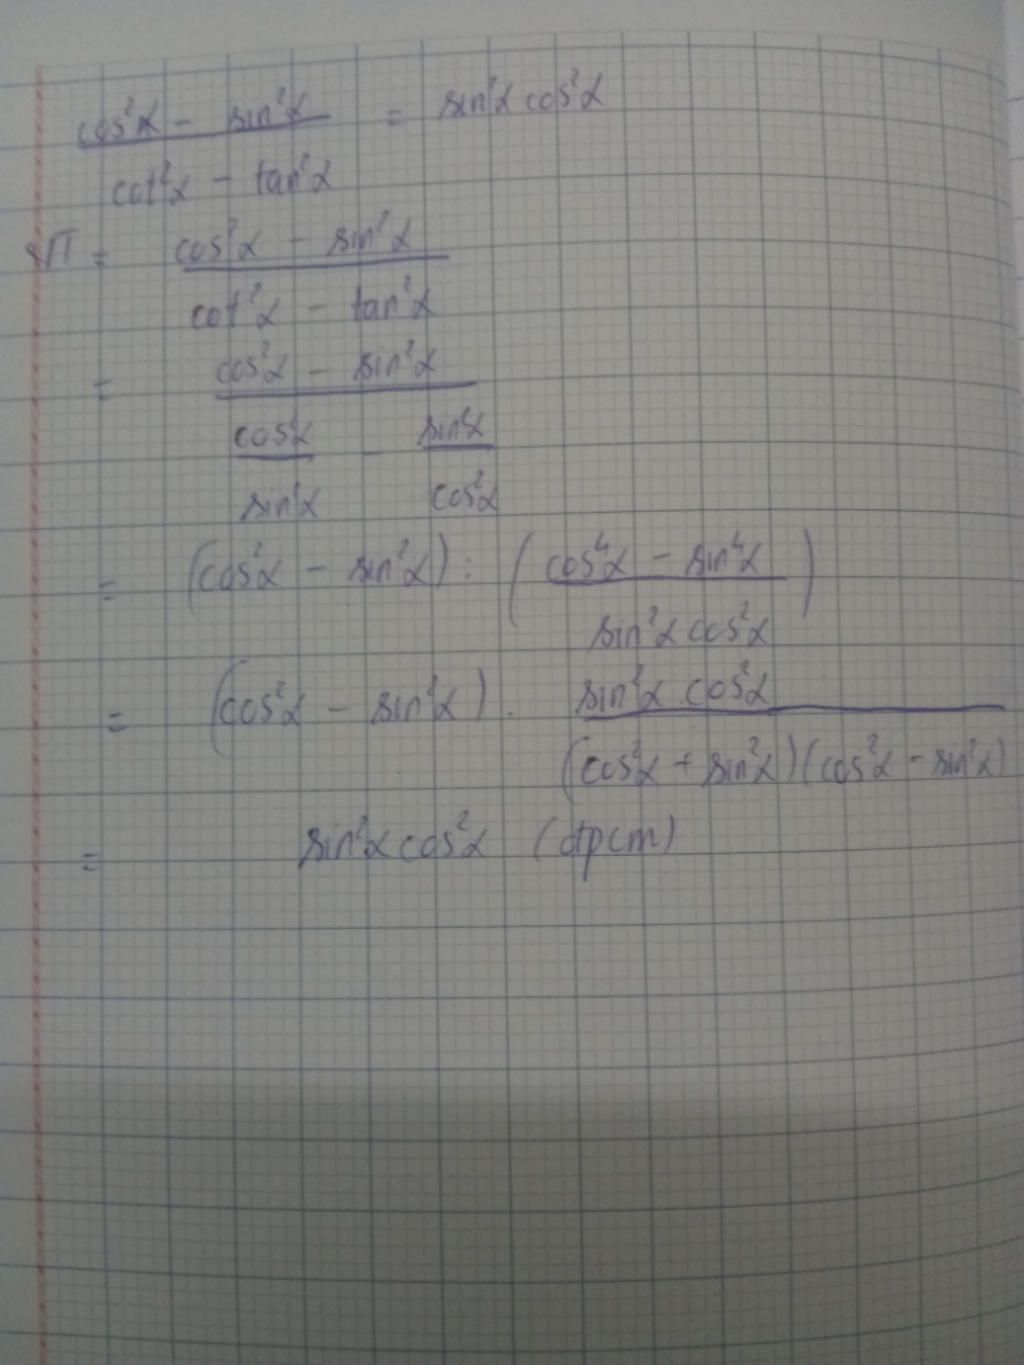 cos²α - sin²α = sin²α cos²α
cot²α - tan²α
VT = cos²α - sin²α
cot²α - tan²α
= cos²α - sin²α
cos²α - sin²α
sin²α cos²α
= (cos²α - sin²α) : (cos⁴α - sin⁴α)
sin²α cos²α
= (cos²α - sin²α) . sin²α.cos²α
(cos²α + sin²α)(cos²α - sin²α)
= sin²α cos²α (đpcm)